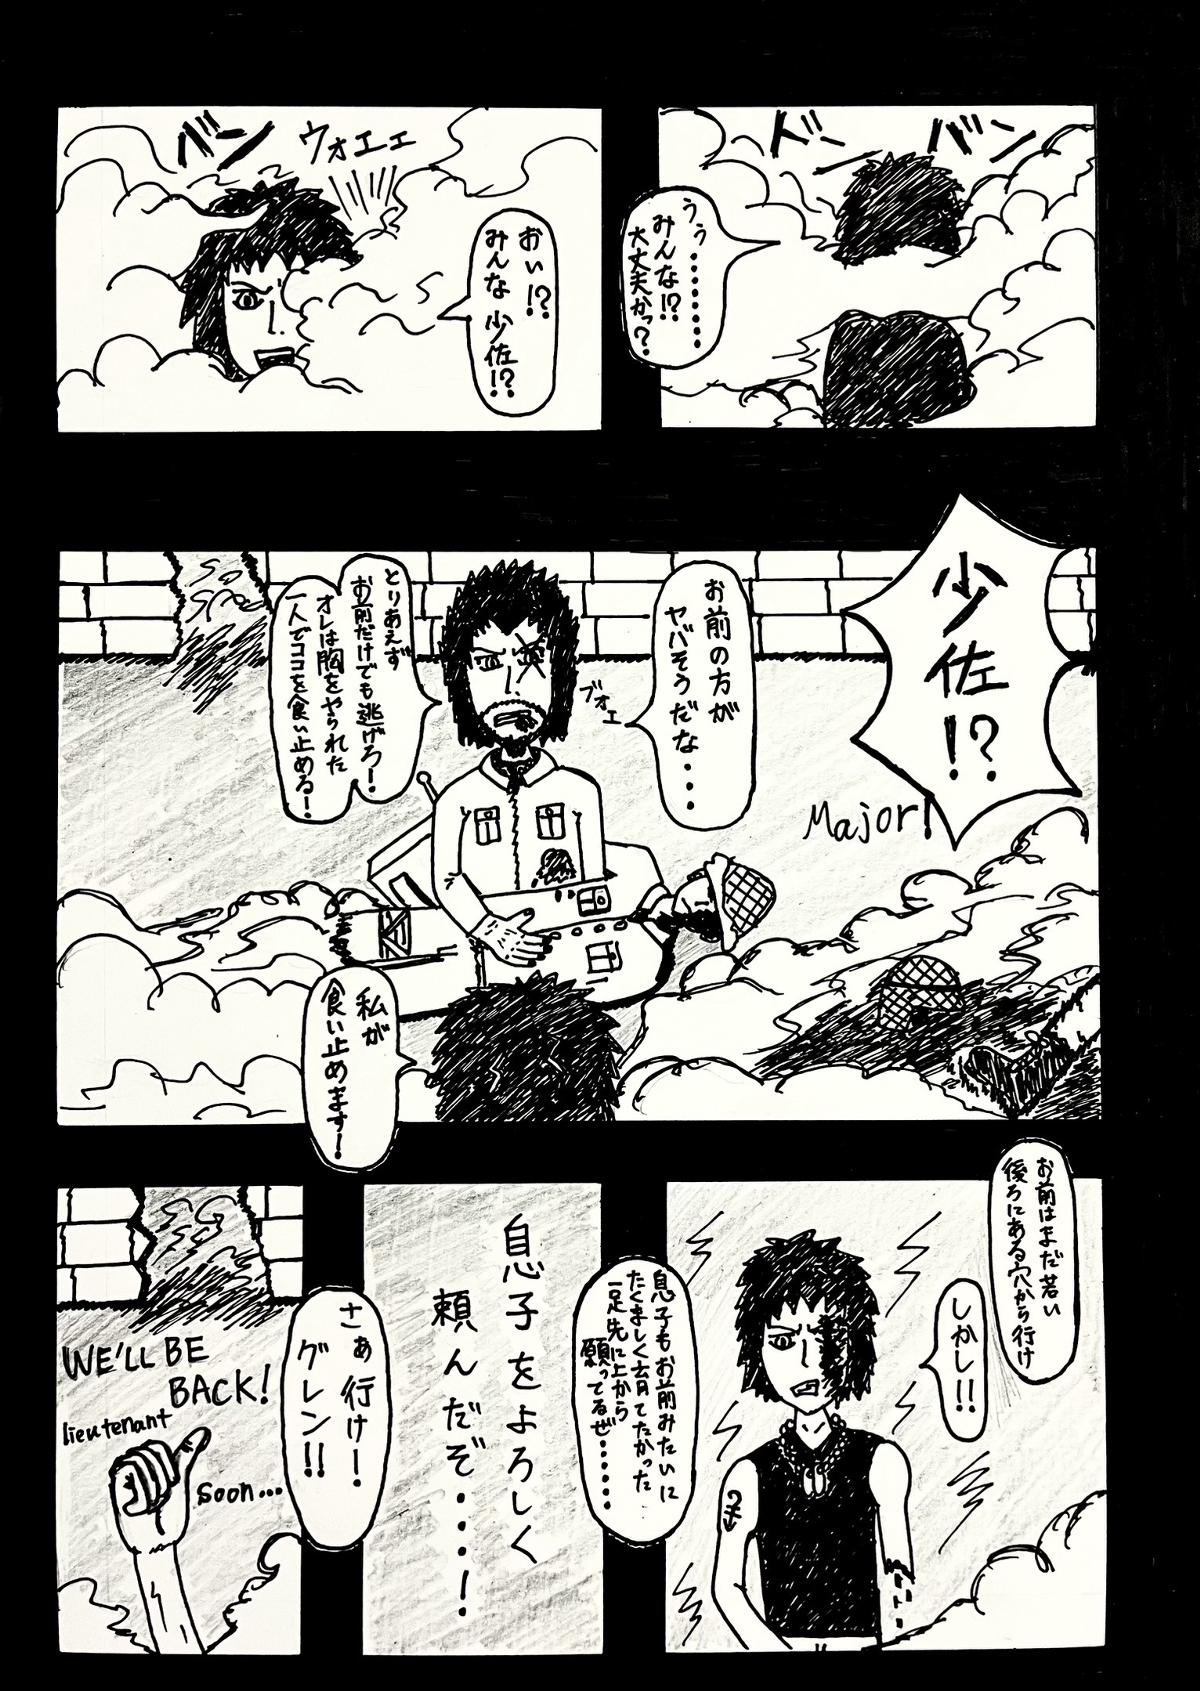 ドーン
バン
うぅ・・・・・・・
みんな!?
大丈夫かっ?
バン
ウォエェ
おい!?
みんな 少佐!?
少佐!?
Major!
お前の方が
ヤバそうだな・・・・
ブォエ
とりあえず
お前だけでも逃げろ!
オレは胸をやられた
一人でココを食い止める!
私が
食い止めます!
お前はまだ若い
後ろにある穴から行け
しかし!!
息子もお前みたいに
たくましく育てたかった
一足先に上から
願ってるぜ・・・・・・
息子をよろしく
頼んだぞ・・・・!
さぁ行け!
グレン!!
WE'LL BE
BACK!
lieutenant
soon...